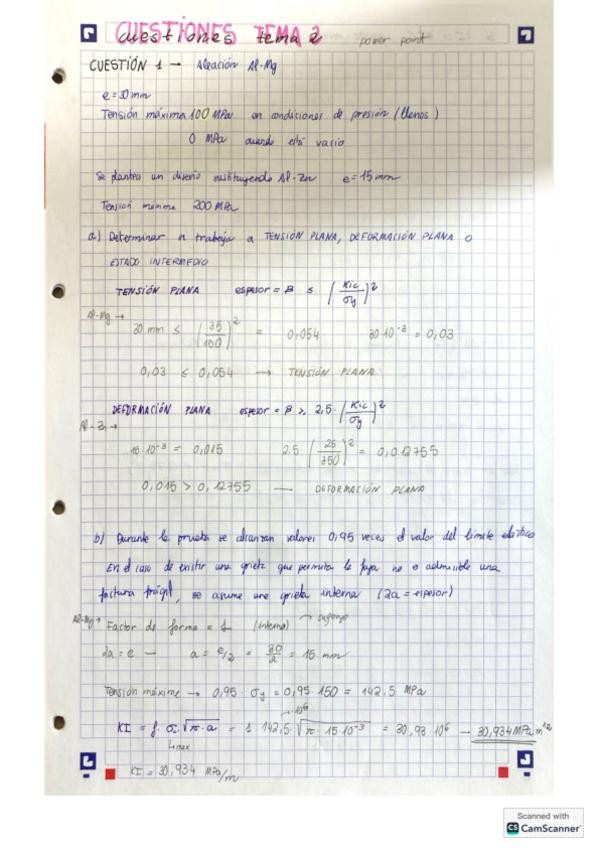 CUESTIONES TEMA 2
cuestiones tema 2 power point
CUESTIÓN 1 → Aleación Al-Mg
e = 30 mm
Tensión máxima 100 MPa en condiciones de presión (llenos)
0 MPa cuando está vacío
Se plantea un diseño sustituyendo Al-Zn e = 15 mm
Tensión máxima 200 MPa
a) Determinar si trabaja a TENSIÓN PLANA, DEFORMACIÓN PLANA O
ESTADO INTERMEDIO
TENSIÓN PLANA espesor = B ≤ (KIC/σy)²
Al-Mg →
30 mm ≤ (35/150)² = 0,054 30·10⁻³ = 0,03
0,03 ≤ 0,054 → TENSIÓN PLANA
DEFORMACIÓN PLANA espesor = B ≥ 2,5·(KIC/σy)²
Al-Zn →
15·10⁻³ = 0,015 2.5 (25/350)² = 0,012755
0,015 > 0,12755 — DEFORMACIÓN PLANA
b) Durante la prueba se alcanzan valores 0,95 veces el valor del límite elástico
En el caso de existir una grieta que permita la fuga no o admisible una
fractura frágil, se asume una grieta interna (2a = espesor)
Al-Mg → Factor de forma = 1 (interna) → supongo
2a = e → a = e/2 = 30/2 = 15 mm
Tensión máxima → 0,95 · σy = 0,95 · 150 = 142,5 MPa
→ 10⁶
KI = f · σ · √π · a = 1 142,5 · √π · 15·10⁻³ = 30,93·10⁶ → 30,934 MPa m^1/2
max
KI = 30,934 MPa/m
Scanned with
CS CamScanner